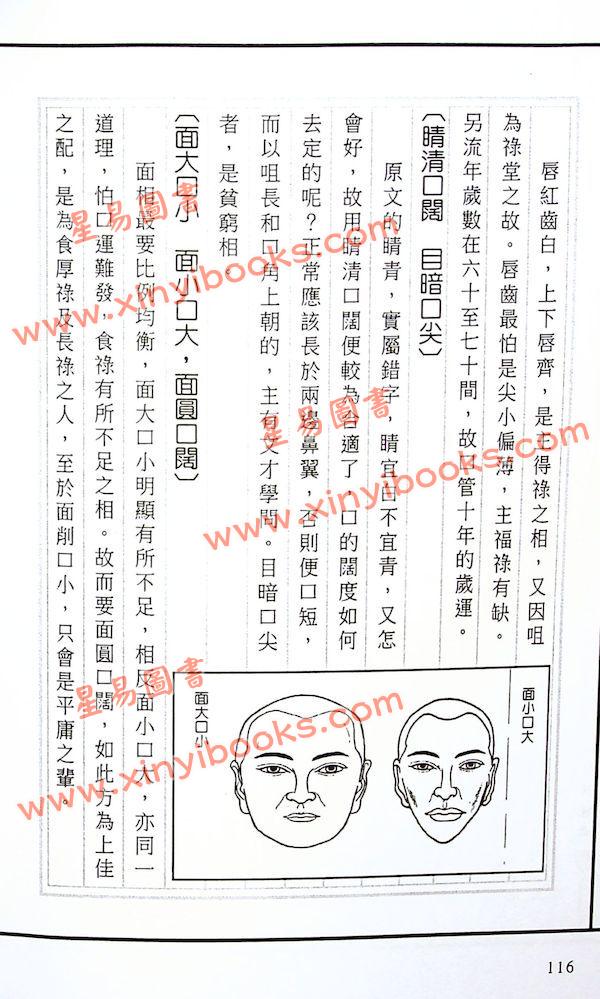 唇紅齒白,上下唇齊,是主得祿之相,又因咀
為祿堂之故。唇齒最怕是尖小偏薄,主福祿有缺。
另流年歲數在六十至七十間,故口管十年的歲運。
〔睛清口闊 目暗口尖〕
原文的睛青,實屬錯字,睛宜白不宜青,又怎
會好,故用睛清口闊便較為合適了,口的闊度如何
去定的呢?正常應該長於兩邊鼻翼,否則便口短,
而以咀長和口角上朝的,主有文才學問。目暗口尖
者,是貧窮相。
〔面大口小 面小口大,面圓口闊〕
面相最要比例均衡,面大口小明顯有所不足,相反面小口大,亦同一
道理,怕口運難發,食祿有所不足之相。故而要面圓口闊,如此方為上佳
之配,是為食厚祿及長祿之人,至於面削口小,只會是平庸之輩。
面小口大
面大口小
116
星易圖書
www.xinyibooks.com
星易圖書
www.xinyibooks.com
星易圖書
www.xinyibooks.com